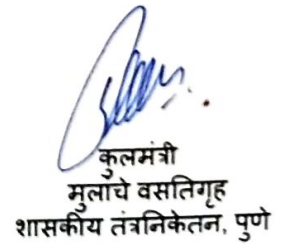 कुलमंत्री
मुलांचे वसतिगृह
शासकीय तंत्रनिकेतन, पुणे